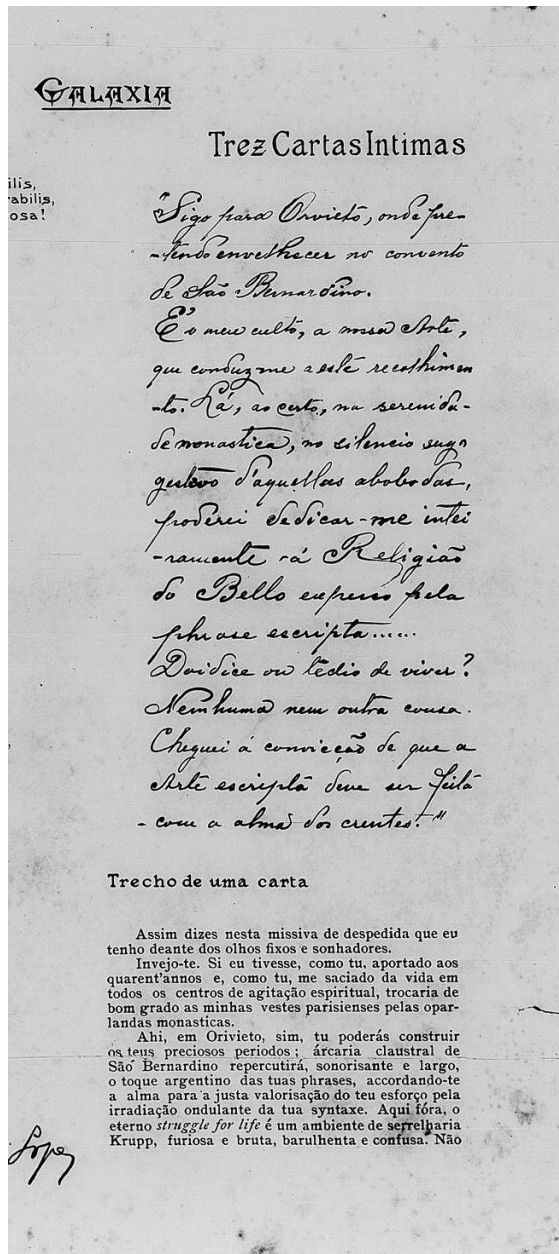 GALAXIA
Trez Cartas Intimas
ilis,
rabilis,
osa!
"Sigo para Orvieto, onde pre-
-tendo envelhecer no convento
de São Bernardino.
É o meu culto, a nossa Arte,
que conduz-me a este recolhimen
-to. Lá, ao certo, na serenida-
de monastica, no silencio sug
gestivo d'aquellas abobodas,
poderei dedicar-me intei
-ramente á Religião
do Bello expresso pela
phrase escripta.....
Doidice ou tédio de viver?
Nem huma nem outra cousa.
Cheguei á convicção de que a
Arte escripta deve ser feita
- com a alma dos crentes."
Trecho de uma carta
Assim dizes nesta missiva de despedida que eu
tenho deante dos olhos fixos e sonhadores.
Invejo-te. Si eu tivesse, como tu, aportado aos
quarent'annos e, como tu, me saciado da vida em
todos os centros de agitação espiritual, trocaria de
bom grado as minhas vestes parisienses pelas opar-
landas monasticas.
Ahi, em Orivieto, sim, tu poderás construir
os teus preciosos periodos ; árcaria claustral de
São Bernardino repercutirá, sonorisante e largo,
o toque argentino das tuas phrases, accordando-te
a alma para a justa valorisação do teu esforço pela
irradiação ondulante da tua syntaxe. Aqui fóra, o
eterno struggle for life é um ambiente de serrelharia
Krupp, furiosa e bruta, barulhenta e confusa. Não
Lopes